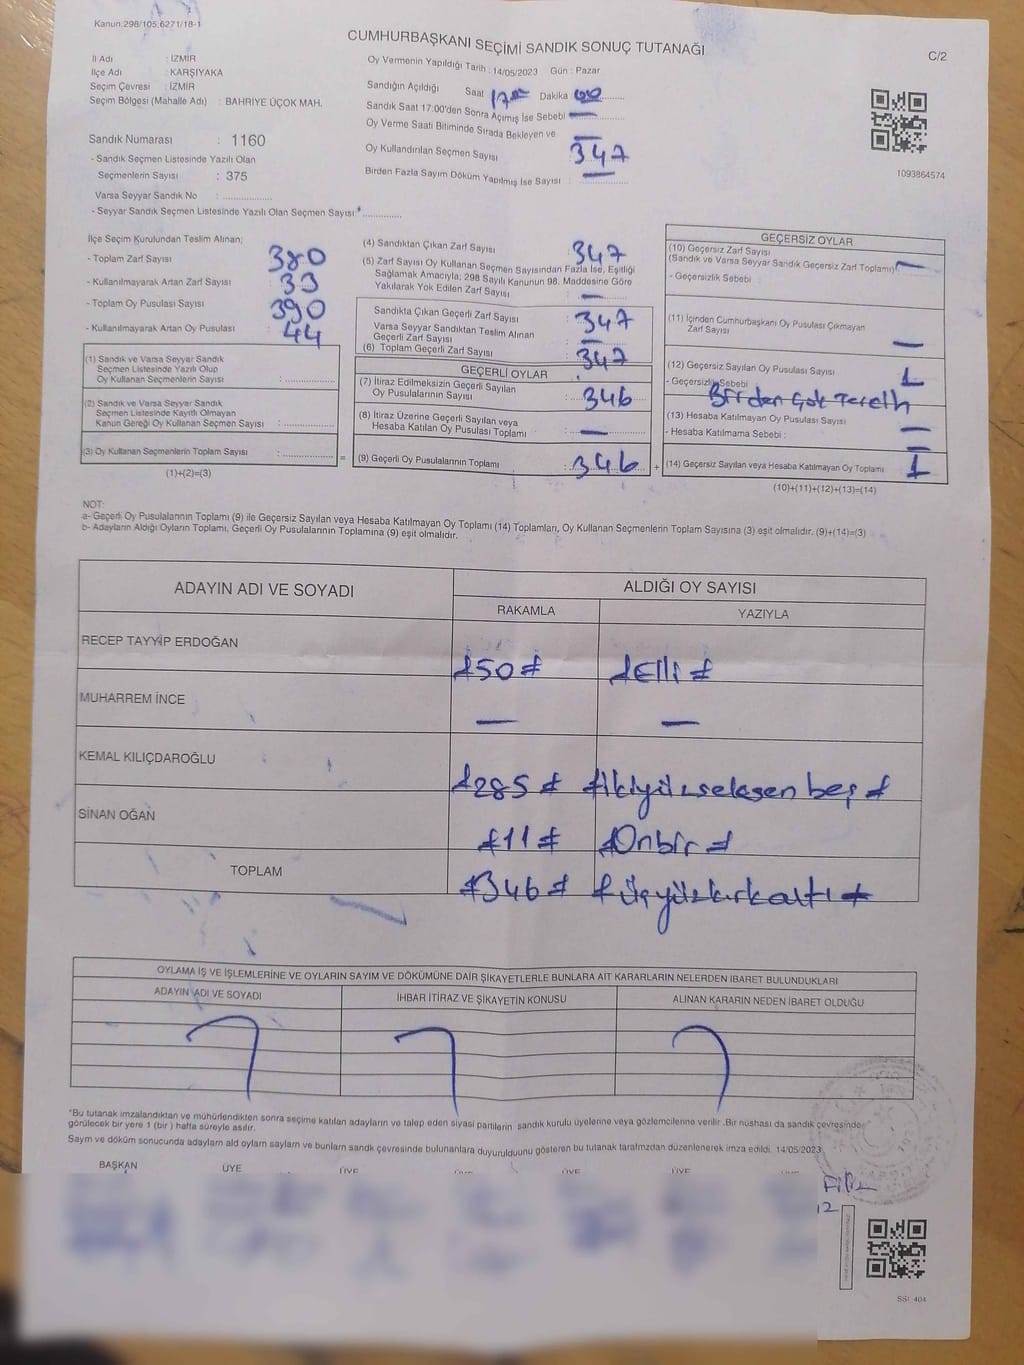 Kanun:298/105,6271/18-1
CUMHURBAŞKANI SEÇİMİ SANDIK SONUÇ TUTANAĞI
C/2
İl Adı : İZMİR
İlçe Adı : KARŞIYAKA
Seçim Çevresi : İZMİR
Seçim Bölgesi (Mahalle Adı) : BAHRİYE ÜÇOK MAH.
Sandık Numarası : 1160
- Sandık Seçmen Listesinde Yazılı Olan
Seçmenlerin Sayısı : 375
Varsa Seyyar Sandık No :
- Seyyar Sandık Seçmen Listesinde Yazılı Olan Seçmen Sayısı*
Oy Vermenin Yapıldığı Tarih : 14/05/2023 Gün : Pazar
Sandığın Açıldığı Saat 17 00 Dakika 00
Sandık Saat 17:00'den Sonra Açımış İse Sebebi —
Oy Verme Saati Bitiminde Sırada Bekleyen ve
Oy Kullandırılan Seçmen Sayısı — 347
Birden Fazla Sayım Döküm Yapılmış İse Sayısı : —
1093864574
İlçe Seçim Kurulundan Teslim Alınan;
- Toplam Zarf Sayısı : 380
- Kullanılmayarak Artan Zarf Sayısı : 33
- Toplam Oy Pusulası Sayısı : 390
- Kullanılmayarak Artan Oy Pusulası : 44
(1) Sandık ve Varsa Seyyar Sandık
Seçmen Listesinde Yazılı Olup
Oy Kullanan Seçmenlerin Sayısı :
(2) Sandık ve Varsa Seyyar Sandık
Seçmen Listesinde Kayıtlı Olmayan
Kanun Gereği Oy Kullanan Seçmen Sayısı :
(3) Oy Kullanan Seçmenlerin Toplam Sayısı : =
(1)+(2)=(3)
(4) Sandıktan Çıkan Zarf Sayısı : 347
(5) Zarf Sayısı Oy Kullanan Seçmen Sayısından Fazla İse, Eşitliği
Sağlamak Amacıyla; 298 Sayılı Kanunun 98. Maddesine Göre
Yakılarak Yok Edilen Zarf Sayısı : —
Sandıkta Çıkan Geçerli Zarf Sayısı : 347
Varsa Seyyar Sandıktan Teslim Alınan
Geçerli Zarf Sayısı : —
(6) Toplam Geçerli Zarf Sayısı : 347
GEÇERLİ OYLAR
(7) İtiraz Edilmeksizin Geçerli Sayılan
Oy Pusulalarının Sayısı : 346
(8) İtiraz Üzerine Geçerli Sayılan veya
Hesaba Katılan Oy Pusulası Toplamı : —
(9) Geçerli Oy Pusulalarının Toplamı : 346 +
GEÇERSİZ OYLAR
(10) Geçersiz Zarf Sayısı
(Sandık ve Varsa Seyyar Sandık Geçersiz Zarf Toplamı) —
- Geçersizlik Sebebi :
(11) İçinden Cumhurbaşkanı Oy Pusulası Çıkmayan
Zarf Sayısı —
(12) Geçersiz Sayılan Oy Pusulası Sayısı 1
- Geçersizlik Sebebi Birden Çok Tercih
(13) Hesaba Katılmayan Oy Pusulası Sayısı —
- Hesaba Katılmama Sebebi :
(14) Geçersiz Sayılan veya Hesaba Katılmayan Oy Toplamı 1
(10)+(11)+(12)+(13)=(14)
NOT:
a- Geçerli Oy Pusulalarının Toplamı (9) ile Geçersiz Sayılan veya Hesaba Katılmayan Oy Toplamı (14) Toplamları, Oy Kullanan Seçmenlerin Toplam Sayısına (3) eşit olmalıdır. (9)+(14)=(3)
b- Adayların Aldığı Oyların Toplamı, Geçerli Oy Pusulalarının Toplamına (9) eşit olmalıdır.
ADAYIN ADI VE SOYADI ALDIĞI OY SAYISI
RAKAMLA YAZIYLA
RECEP TAYYİP ERDOĞAN ≠50≠ ≠Elli≠
MUHARREM İNCE — —
KEMAL KILIÇDAROĞLU ≠285≠ ≠ikiyüzseksen beş≠
SİNAN OĞAN ≠11≠ ≠Onbir≠
TOPLAM ≠346≠ ≠üçyüzkırkaltı≠
OYLAMA İŞ VE İŞLEMLERİNE VE OYLARIN SAYIM VE DÖKÜMÜNE DAİR ŞİKAYETLERLE BUNLARA AİT KARARLARIN NELERDEN İBARET BULUNDUKLARI
ADAYIN ADI VE SOYADI İHBAR İTİRAZ VE ŞİKAYETİN KONUSU ALINAN KARARIN NEDEN İBARET OLDUĞU
*Bu tutanak imzalandıktan ve mühürlendikten sonra seçime katılan adayların ve talep eden siyasi partilerin sandık kurulu üyelerine veya gözlemcilerine verilir .Bir nüshası da sandık çevresinde
görülecek bir yere 1 (bir ) hafta süreyle asılır.
Sayım ve döküm sonucunda adayların ald oyların sayları ve bunların sandk çevresinde bulunanlara duyurulduunu gösteren bu tutanak tarafmzdan düzenlenerek imza edildi. 14/05/2023
BAŞKAN ÜYE ÜYE ÜYE ÜYE ÜYE
12
SSI 404